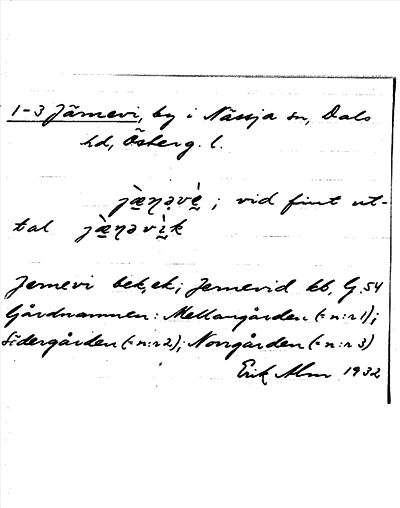 1-3 Järnevi, by i Nässja sn, Dals
hd, Österg. l.
jæ̀ɳəvè̱ ; vid fint ut-
tal jæ̀ɳəvì̱k
Jernevi bek, ek; Jernevid kb, G.54
Gårdnamnen: Mellangården (= n:r 1);
Södergården (= n:r 2); Norrgården (= n:r 3)
Erik Alm 1932